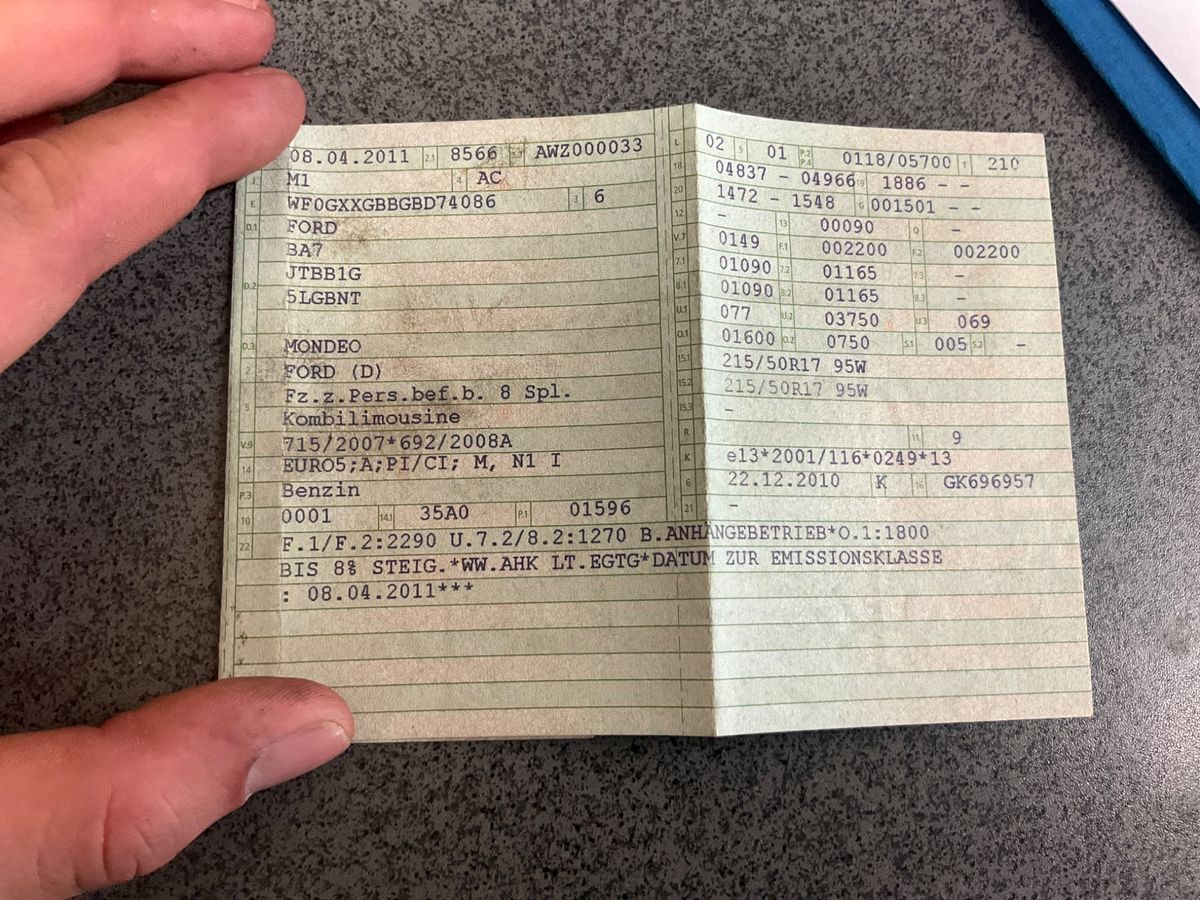 08.04.2011 2.1 8566 AWZ000033
J M1 4 AC
E WF0GXXGBBGBD74086 3 6
D.1 FORD
BA7
D.2 JTBB1G
5LGBNT
D.3 MONDEO
2 FORD (D)
5 Fz.z.Pers.bef.b. 8 Spl.
Kombilimousine
V.9 715/2007*692/2008A
14 EURO5;A;PI/CI; M, N1 I
P.3 Benzin
10 0001 14.1 35A0 P.1 01596
L 02 9 01 P.2 P.4 0118/05700 T 210
18 04837 - 04966 19 1886 - -
20 1472 - 1548 G 001501 - -
12 - 13 00090 Q -
V.7 0149 F.1 002200 F.2 002200
7.1 01090 7.2 01165 7.3 -
8.1 01090 8.2 01165 8.3 -
U.1 077 U.2 03750 U.3 069
O.1 01600 O.2 0750 S.1 005 S.2 -
15.1 215/50R17 95W
15.2 215/50R17 95W
15.3 -
R 11 9
K e13*2001/116*0249*13
6 22.12.2010 K 16 GK696957
21 -
22 F.1/F.2:2290 U.7.2/8.2:1270 B.ANHÄNGEBETRIEB*O.1:1800
BIS 8% STEIG.*WW.AHK LT.EGTG*DATUM ZUR EMISSIONSKLASSE
: 08.04.2011***